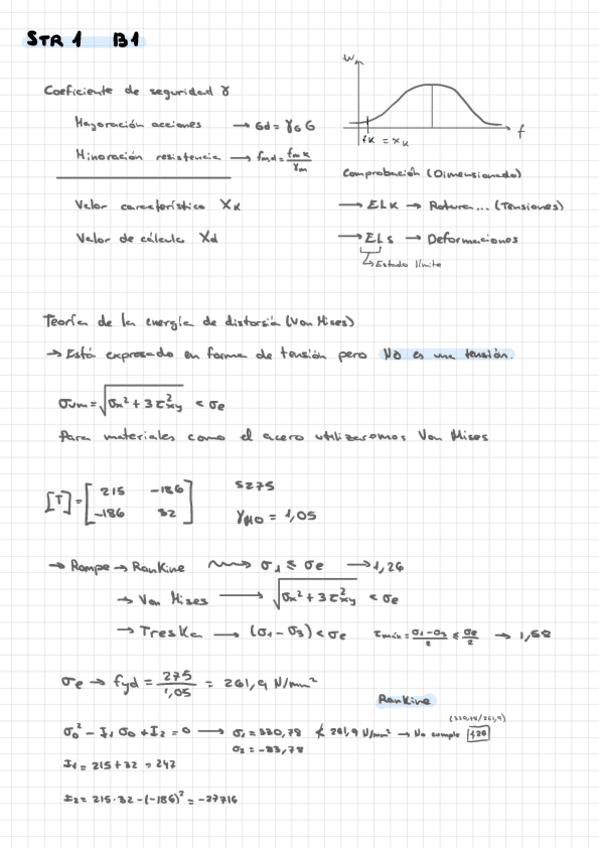 STR 1 B1
Coeficiente de seguridad γ
Mayoración acciones → Gd = γG G
Minoración resistencia → fmd = fmk / γm
Valor característico Xk
Valor de cálculo Xd
W
fk = Xk
f
Comprobación (Dimensionado)
→ ELK → Rotura... (Tensiones)
→ ELS → Deformaciones
↳ Estado límite
Teoría de la energía de distorsión (Von Mises)
→ Está expresado en forma de tensión pero No es una tensión.
σVM = √(σx² + 3τ²xy) < σe
Para materiales como el acero utilizaremos Von Mises
[T] = [215 -186
-186 32]
S275
γM0 = 1,05
→ Rompe → Rankine ⟿ σ1 ≤ σe → 1,26
→ Von Mises → √(σx² + 3τ²xy) < σe
→ Treska → (σ1 - σ3) < σe τmáx = (σ1 - σ3)/2 ≤ σe/2 → 1,58
σe → fyd = 275/1,05 = 261,9 N/mm²
Rankine
σ0² - I1 σ0 + I2 = 0 → σ1 = 330,78 ≮ 261,9 N/mm² → No cumple 1,26
(330,78/261,9)
σ2 = -83,78
I1 = 215 + 32 = 247
I2 = 215 · 32 - (-186)² = -27716